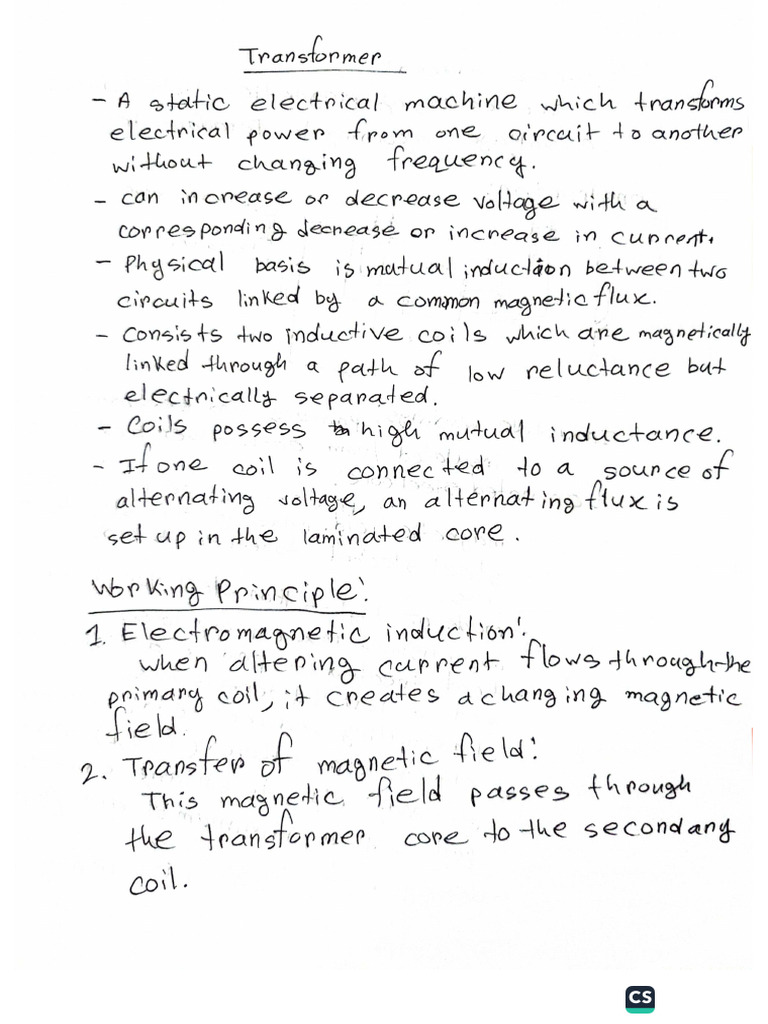 Transformer
- A static electrical machine which transforms
electrical power from one circuit to another
without changing frequency.
- can increase or decrease voltage with a
corresponding decrease or increase in current.
- Physical basis is mutual induction between two
circuits linked by a common magnetic flux.
- consists two inductive coils which are magnetically
linked through a path of low reluctance but
electrically separated.
- Coils possess high mutual inductance.
- If one coil is connected to a source of
alternating voltage, an alternating flux is
set up in the laminated core.
Working Principle:
1. Electromagnetic induction:
when altering current flows through the
primary coil, it creates a changing magnetic
field.
2. Transfer of magnetic field:
This magnetic field passes through
the transformer core to the secondary
coil.
CS